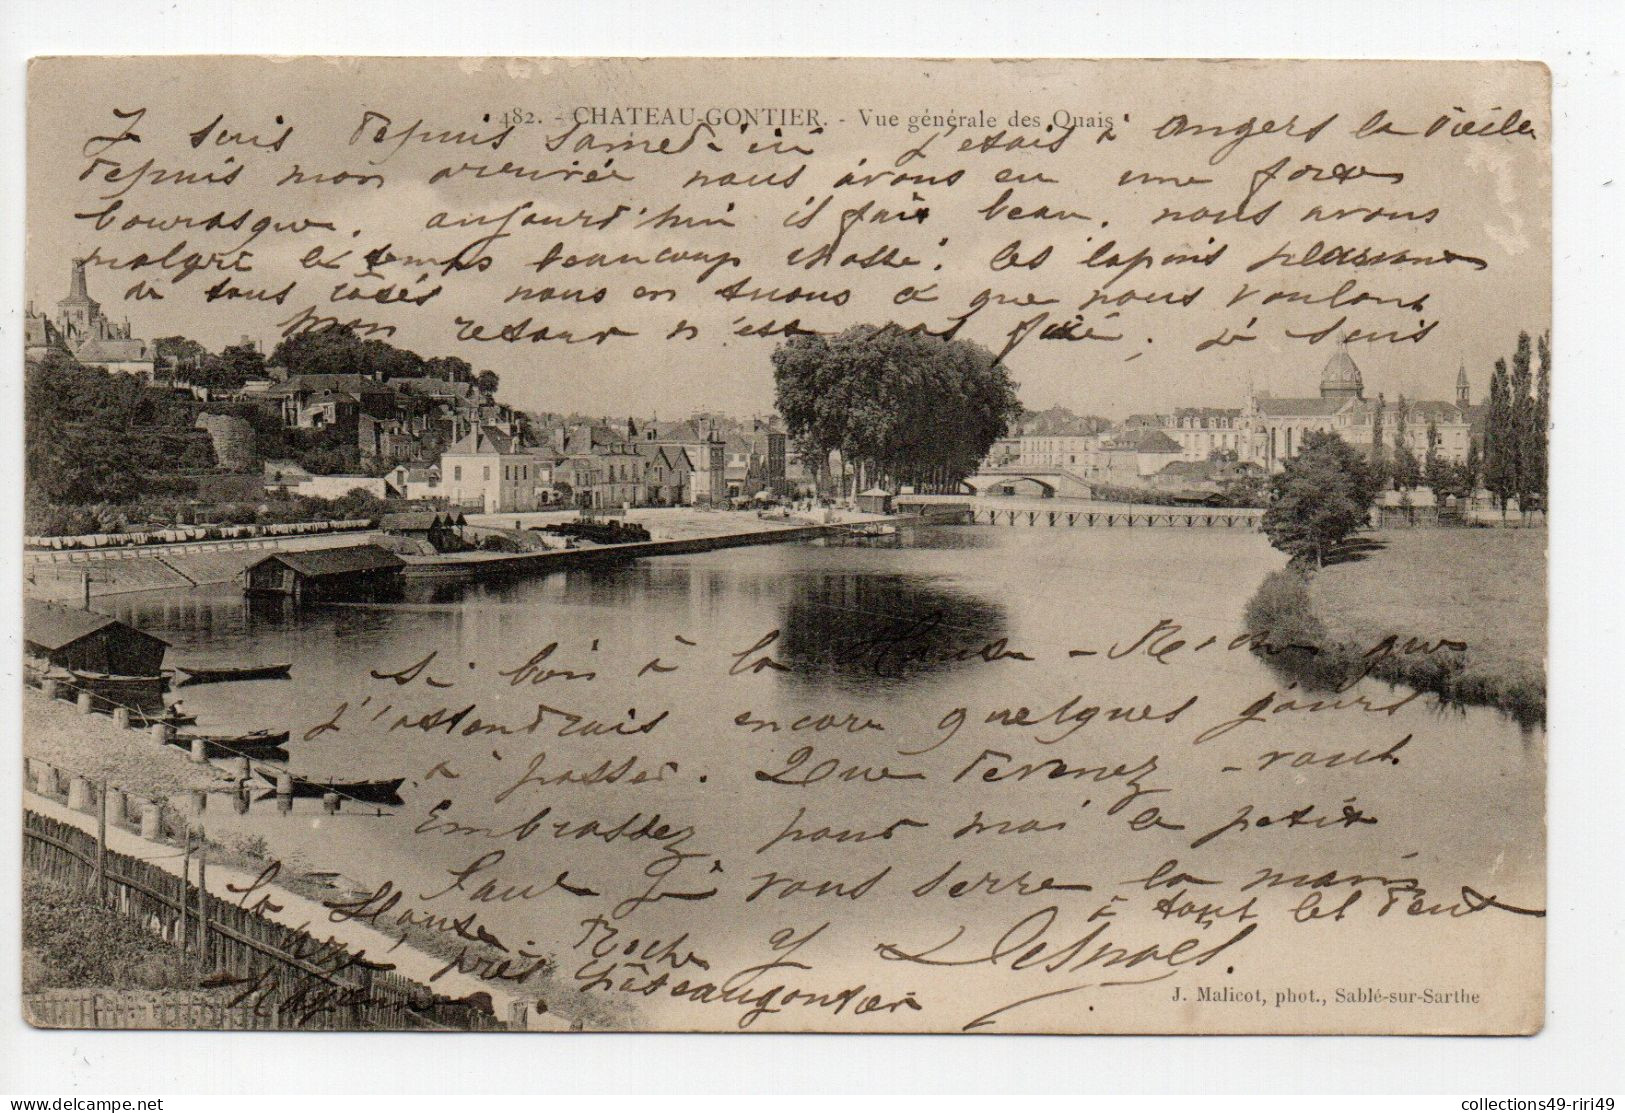 482. - CHATEAU-GONTIER. - Vue générale des Quais
Je suis depuis samedi ici j'etais à Angers la veille
depuis mon arrivée nous avons eu une forte
bourasque. aujourd'hui il fait beau. nous avons
malgré le temps beaucoup chassé. les lapins
de tous cotés nous en tuons a que nous voulons
Mon retour n'est pas fixé. je suis
si bien à la que
j'attendrais encore quelques jours
à passer. Que devenez-vous.
Embrassez pour moi le petit
Paul Je vous serre la main
à tout les deux
La
Roche
près Châteaugontier
Mayenne
J. Malicot, phot., Sablé-sur-Sarthe
delcampe.net
collections49-riri49